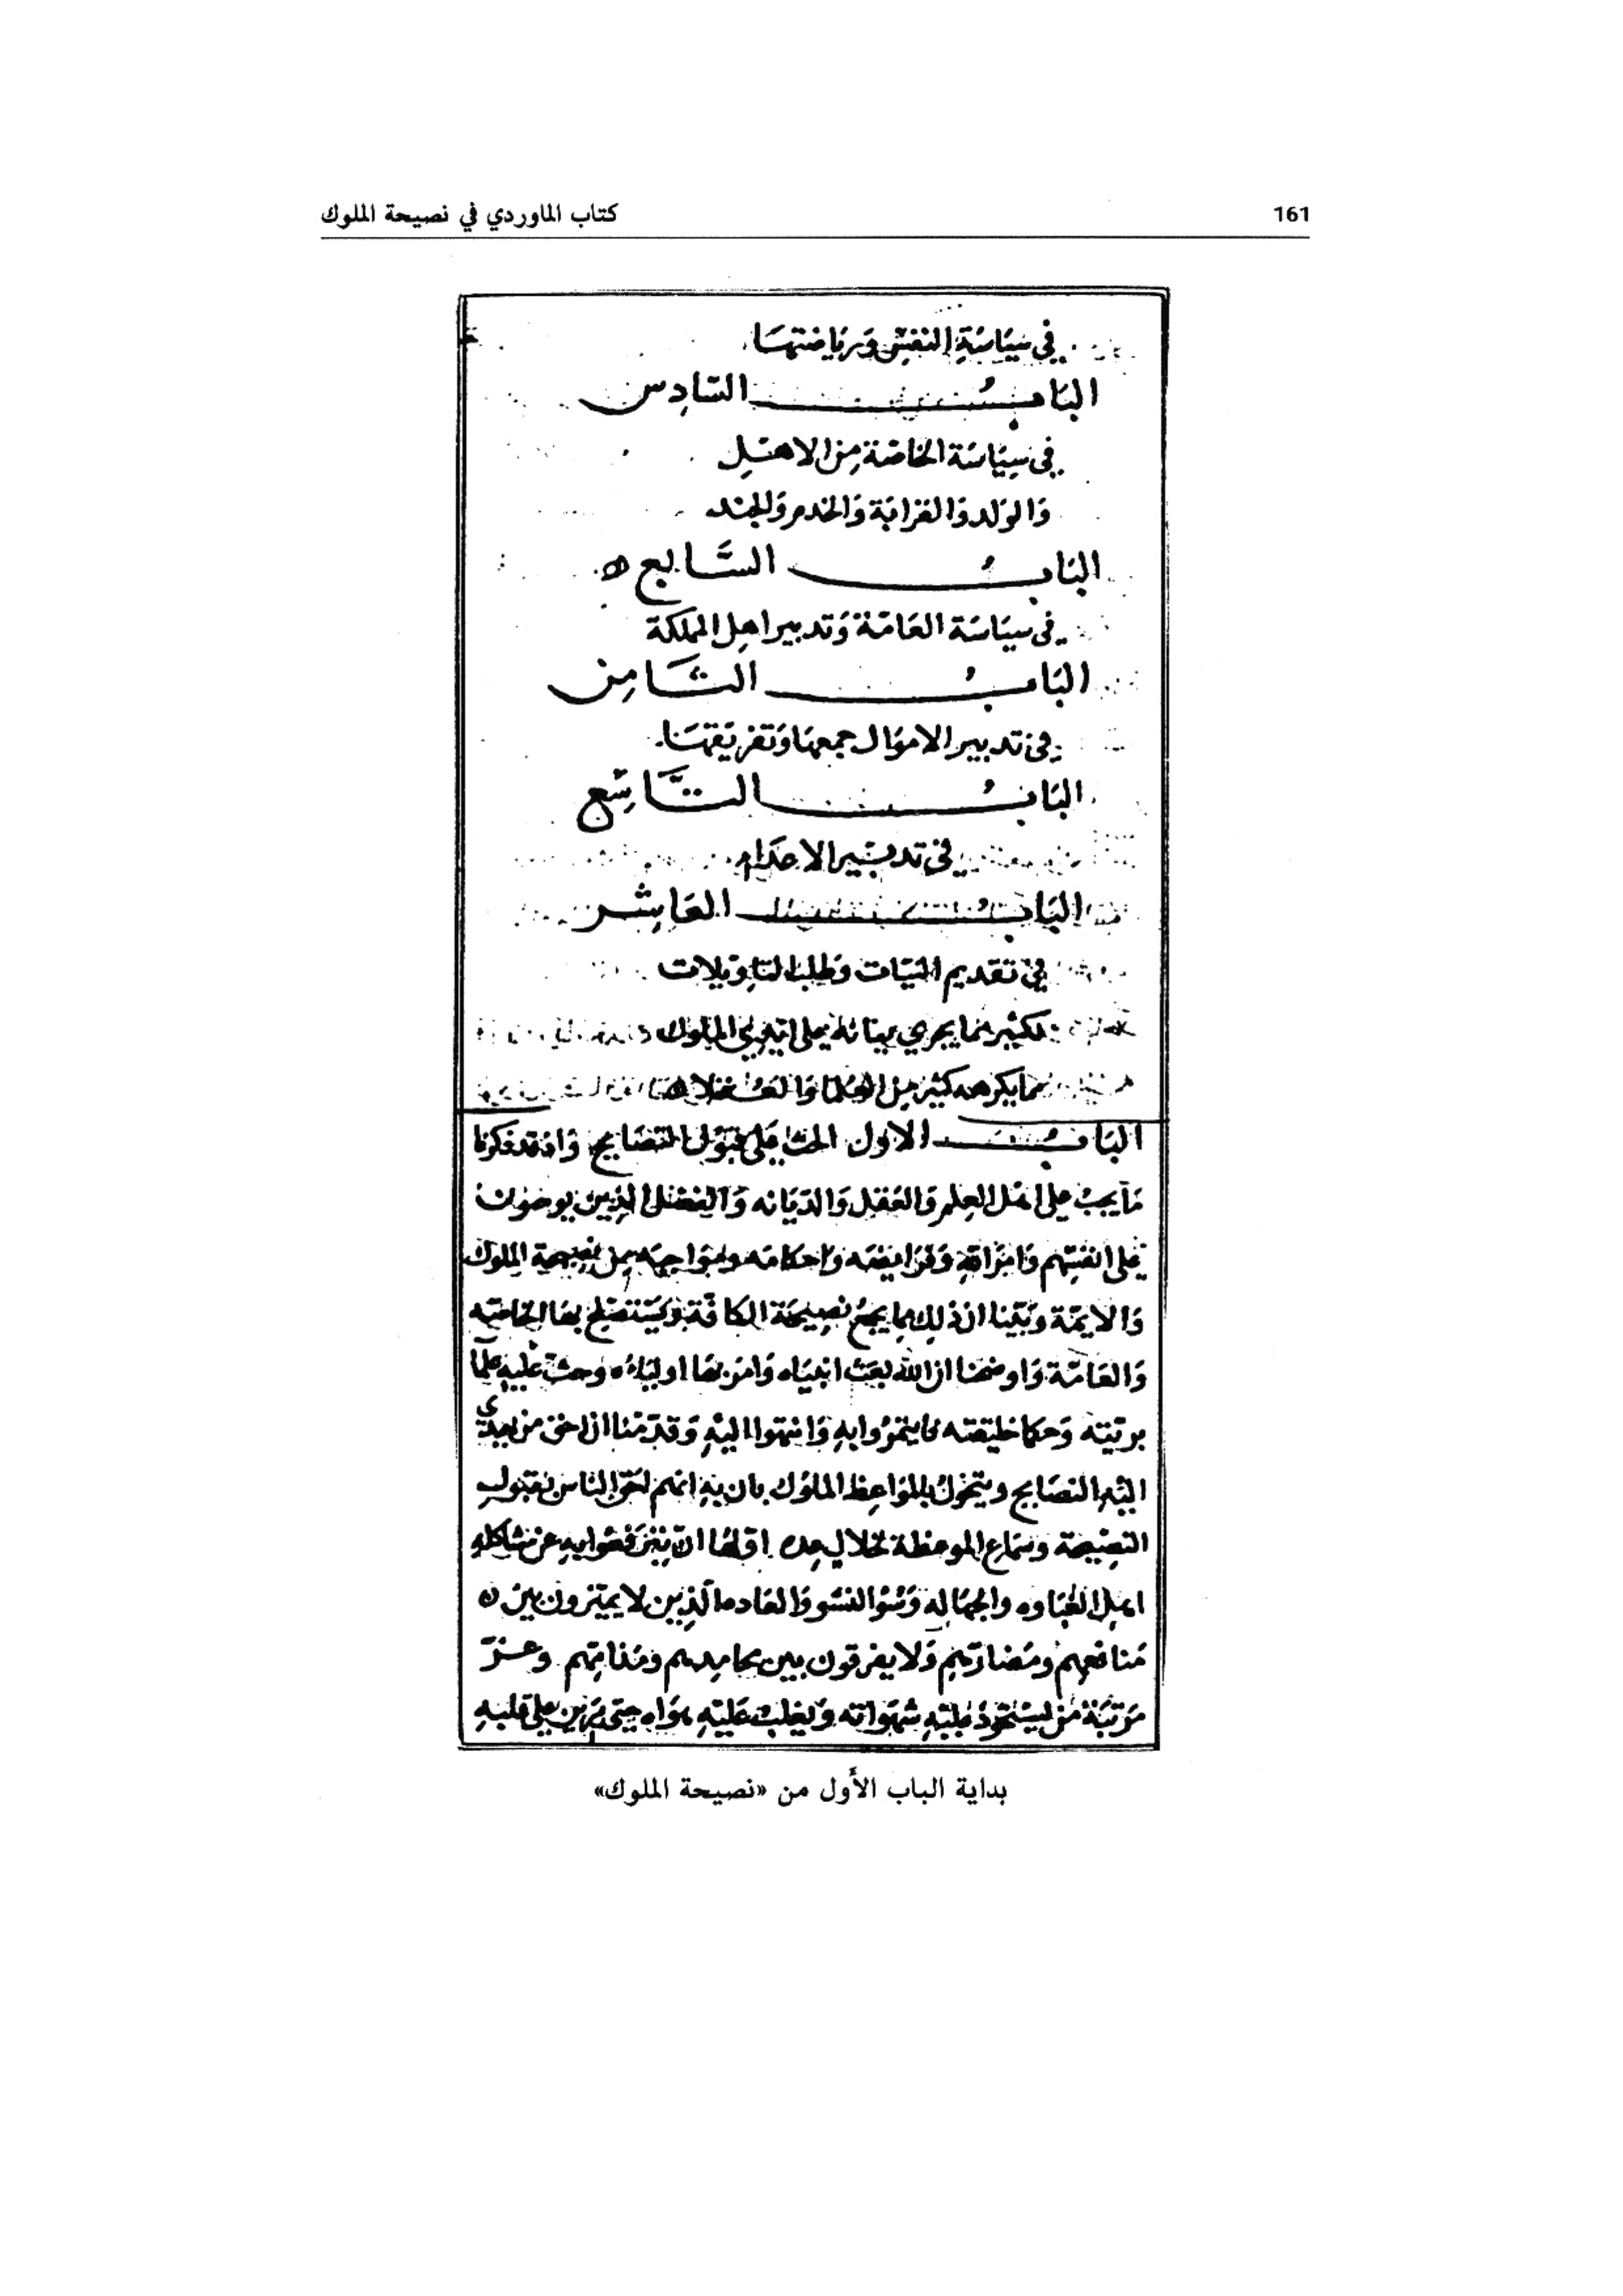 161
كتاب الماوردي في نصيحة الملوك
في سياسة النفس ورياضتها
الباب السادس
في سياسة الخاصة من الاهل
والولد والقرابة والخدم والجند
الباب السابع ه
في سياسة العامة وتدبير اهل المملكة
الباب الثامن
في تدبير الاموال جمعها وتفريقها
الباب التاسع
في تدبير الاعداء
الباب العاشر
في تقديم النيات وطلب التاويلات
لكثير مما يجري بيانه على ايدي الملوك
مما يكرهه كثير من العلما والعقلا ه
الباب الاول الحث على قبول النصايح واذ قد ذكرنا
ما يجب على اهل العلم والعقل والديانه والفضل الذين
على انفسهم وفرايضه واحكامه من نصيحة الملوك
والايمة وبينا ان ذلك مما يجمع نصيحة الكافة ويستصلح بها الخاصه
والعامة واوضحنا ان الله بعث انبياه وامر بها اولياءه وحث عليه علما
بريته وحكما خليقته وانتهوا اليه وقدمنا ان احق من يهدي
اليه النصايح ويتخول بالمواعظ الملوك بان انهم احق الناس بقبول
النصيحة وسماع الموعظة لخلال عده اولها ان عن مشاكله
اهل الغباوه والجهاله وسو النشو والعاده الذين لا يميزون بين
منافعهم ومضارهم ولا يفرقون بين محامدهم ومذامهم وعن
مرتبة من ليستحوذ عليه شهواته ويغلب عليه هواه حتى يرين على قلبه
بداية الباب الأول من «نصيحة الملوك»